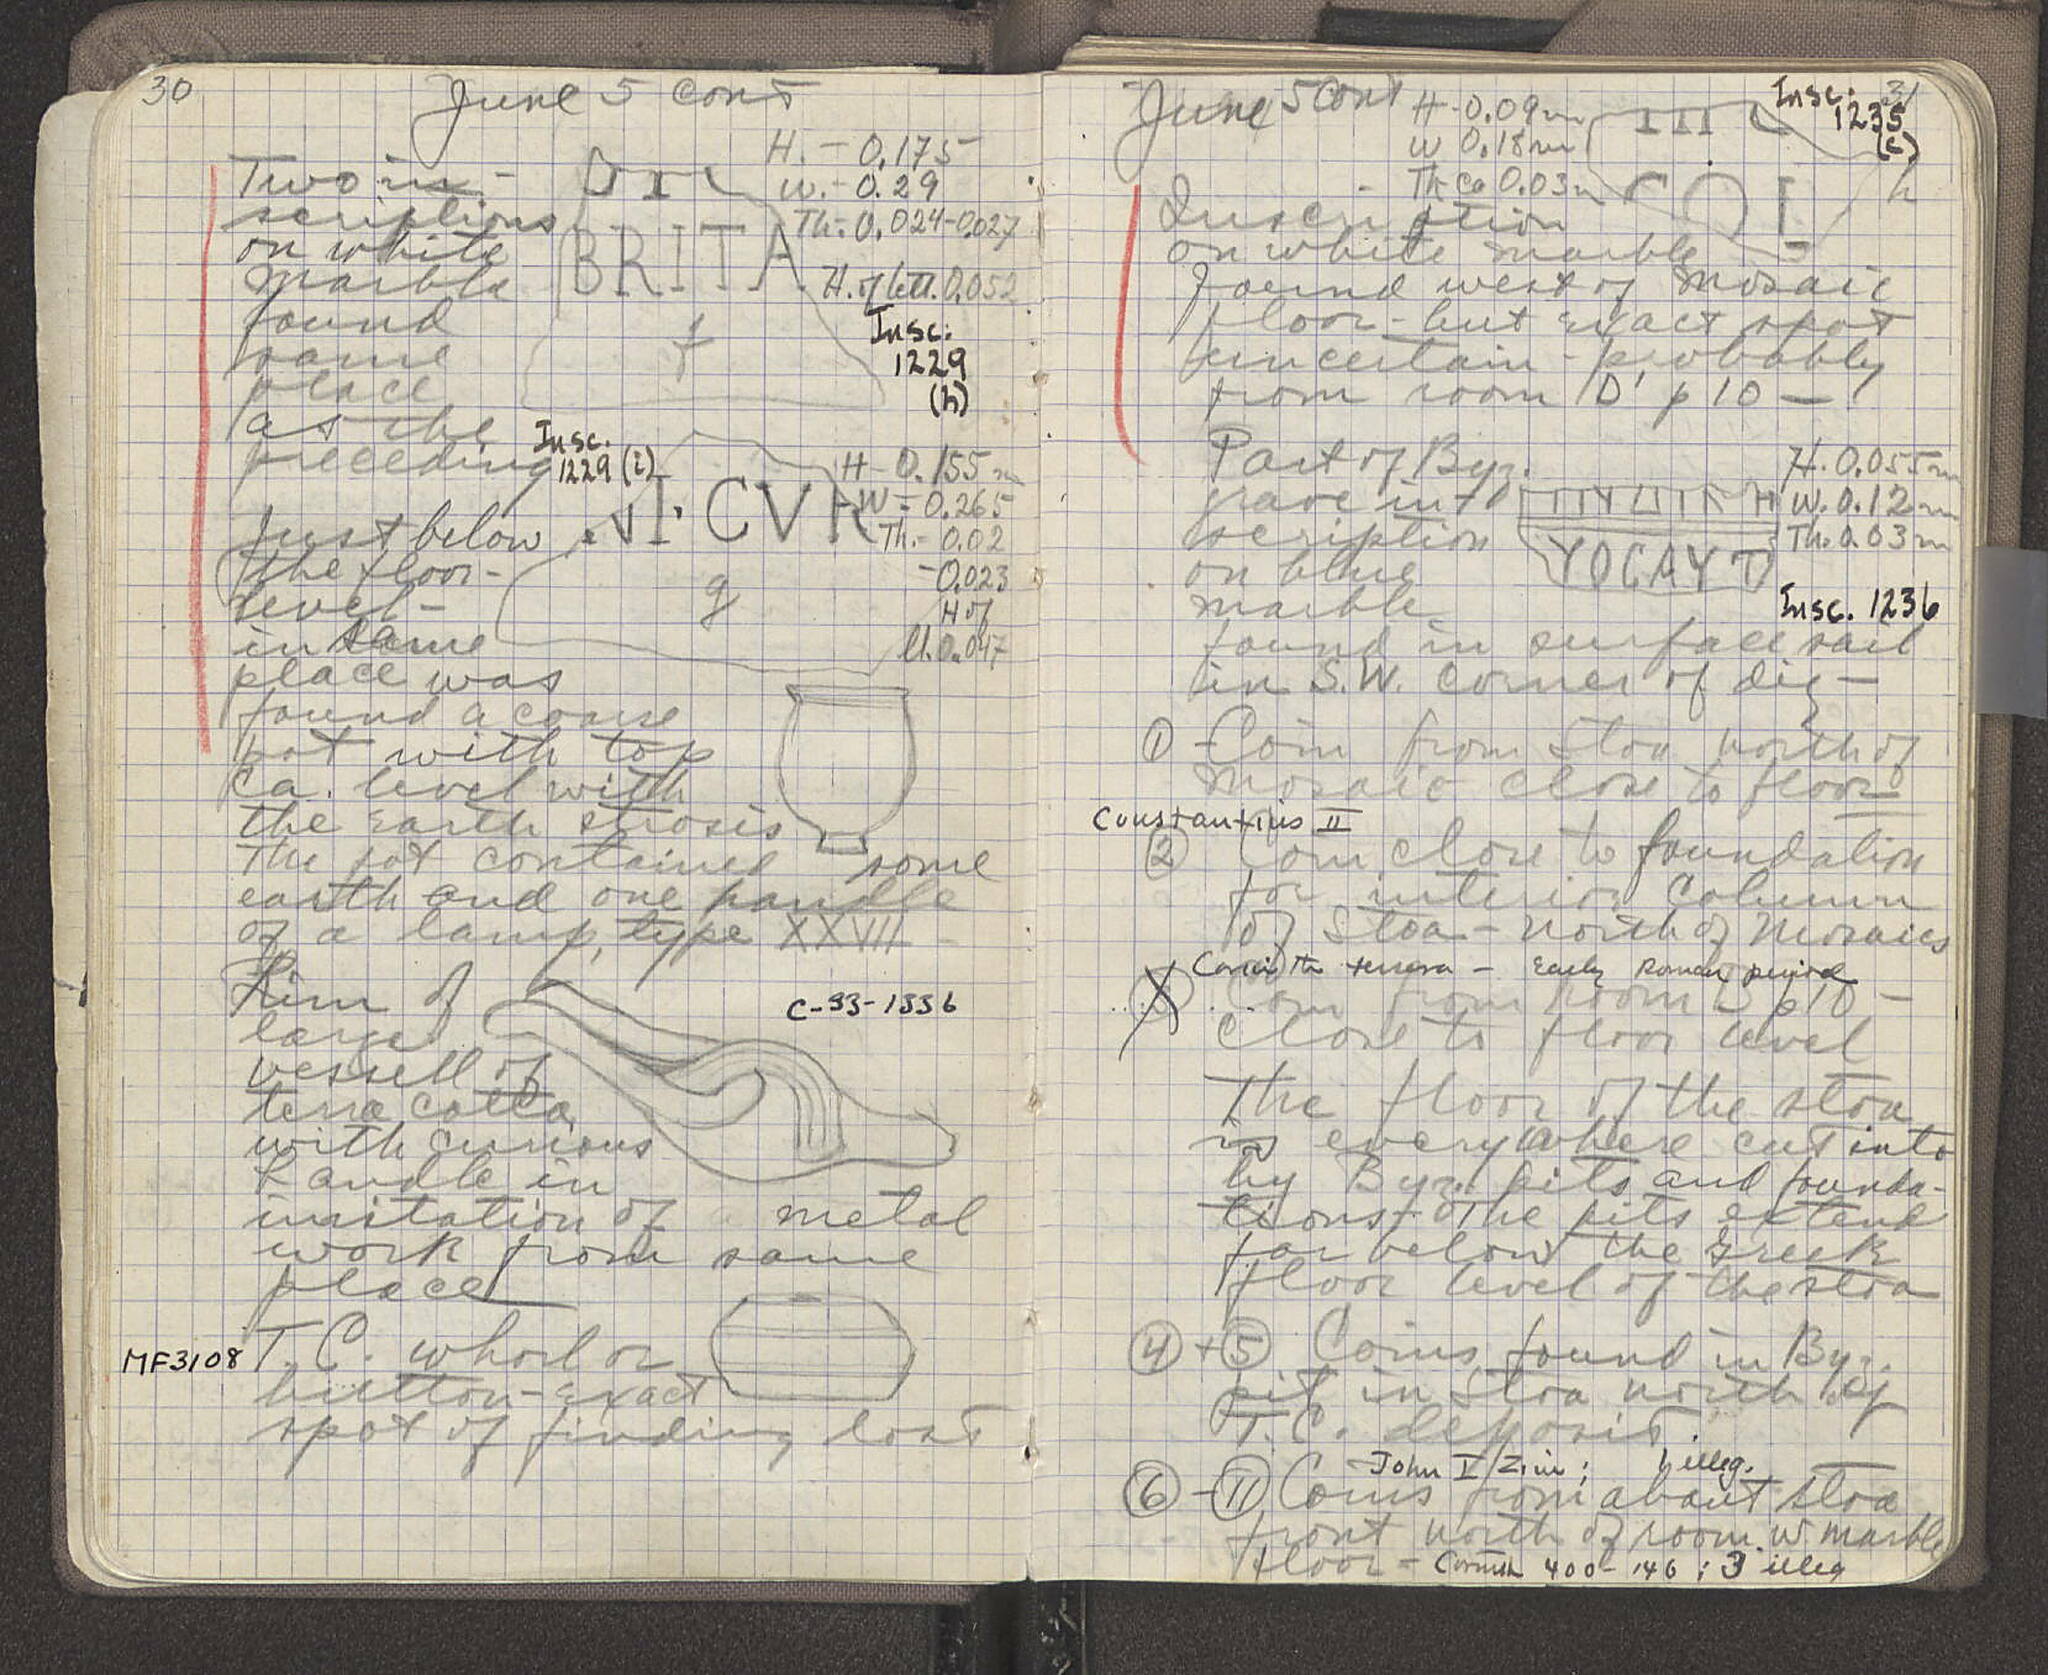 30
June 5 cont
H. – 0.175
W. – 0.29
Th. – 0.024–0.027
H. of lett. 0.052
Two in-
scriptions
on white
marble
found
same
place
as the
preceding
BRITA
f
Insc.
1229
(h)
Insc.
1229 (i)
H – 0.155 m
W – 0.265
Th. – 0.02
– 0.023
H of
lt. 0.047
NI·CVR
g
Just below
the floor-
level –
in same
place was
found a coarse
pot with top
ca. level with
the earth strosis
The pot contained some
earth and one handle
of a lamp, type XXVII –
Rim of
large
vessell of
terra cotta
with curious
handle in
imitation of metal
work from same
place
C-33-1336
MF3108
T. C. whorl or
button – exact
spot of finding lost
31
June 5 cont
H – 0.09 m
W 0.18 m
Th ca 0.03 m
Insc.
1235
(c)
h
Inscription
on white marble
found west of mosaic
floor – but exact spot
uncertain – probably
from room D' p 10 –
Part of Byz.
grave in-
scription
on blue
marble
found in surface soil
in S.W. corner of dig –
H. 0.055 m
W. 0.12 m
Th. 0.03 m
YOCAYT
Insc. 1236
① – Coin from Stoa north of
Mosaic close to floor
Constantius II
② Coin close to foundation
for interior column
of Stoa – north of Mosaics
Corinth tessera – Early Roman period
③ Coin from room D p 10 –
close to floor level
The floor of the stoa
is everywhere cut into
by Byz. pits and founda-
tions – The pits extend
far below the Greek
floor level of the stoa
④ + ⑤ Coins found in Byz.
pit in Stoa north of
T. C. deposit
John I Zim; 1 illeg.
⑥ – ⑪ Coins from about stoa
front north of room w marble
floor – Corinth 400–146; 3 illeg